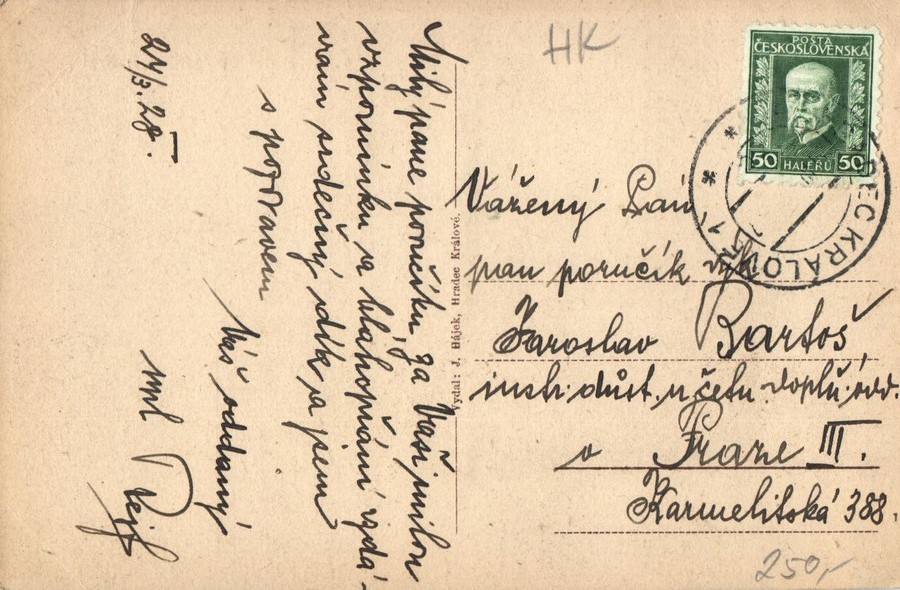 HK
POŠTA
ČESKOSLOVENSKÁ
50 HALÉŘŮ 50
HRADEC KRÁLOVÉ 1
Milý pane poručíku, za Vaši milou
vzpomínku a blahopřání vzdá-
vám srdečný dík a jsem
s pozdravem
Váš oddaný
24/3. 28.
Vydal: J. Hájek, Hradec Králové.
Vážený Pán
pan poručík
Jaroslav Bartoš
instr. důst. u četn. doplň. odd.
v Praze III.
Karmelitská 388.
250,-